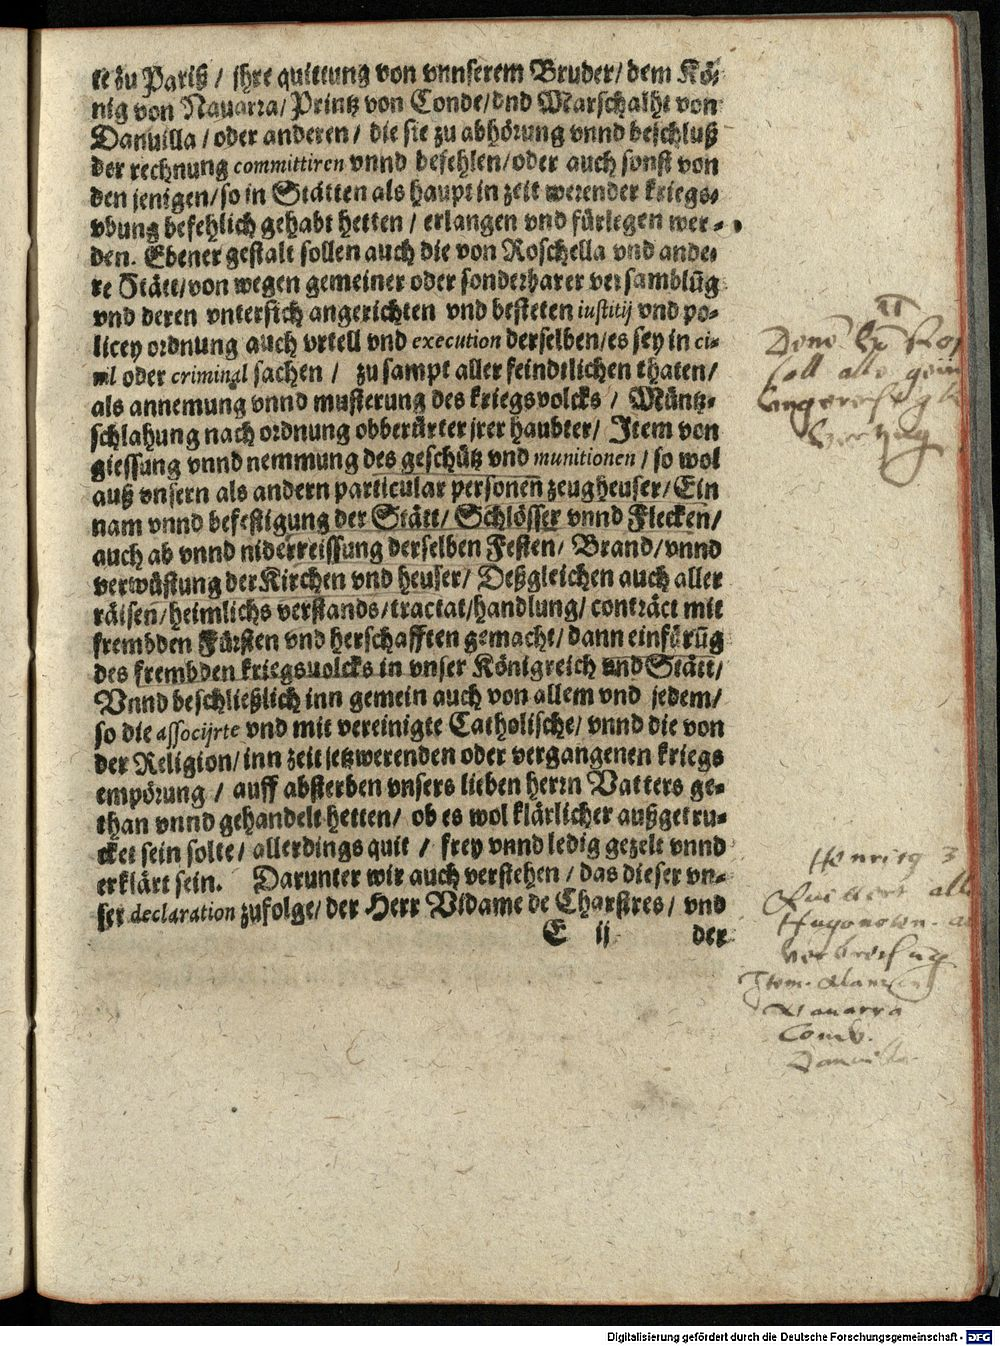 te zu Pariß / jhre quittung von vnnserem Bruder/ dem Kö-
nig von Nauarra/ Printz von Conde/ vnd Marschalht von
Danuilla / oder anderen / die sie zu abhörung vnnd beschluß
der rechnung committiren vnnd befehlen/oder auch sonst von
den jenigen/ so in Stätten als haupt in zeit werender kriegs-
vbung befehlich gehabt hetten / erlangen vnd fürlegen wer-
den. Ebener gestalt sollen auch die von Roschella vnd ande-
re Stätt/ von wegen gemeiner oder sonderbarer versamblũg
vnd deren vntersich angerichten vnd besteten iustitij vnd po-
licey ordnung auch vrteil vnd execution derselben/es sey in ci-
uil oder criminal sachen / zu sampt aller feindtlichen thaten/
als annemung vnnd musterung des kriegsvolcks / Müntz-
schlahung nach ordnung obberürter jrer haubter/ Item von
giessung vnnd nemmung des geschütz vnd munitionen / so wol
auß vnsern als andern particular personen̄ zeugheuser/ Ein
nam vnnd befestigung der Stätt/ Schlösser vnnd Flecken/
auch ab vnnd niderreissung derselben Festen/ Brand/ vnnd
verwüstung der Kirchen vnd heuser/ Deßgleichen auch aller
räisen/ heimlichs verstands/ tractat/ handlung/ conträct mit
frembden Fürsten vnd herschafften gemacht/ dann einfürũg
des frembden kriegsuolcks in vnser Königreich vnd Stätt/
Vnnd beschließlich inn gemein auch von allem vnd jedem/
so die associjrte vnd mit vereinigte Catholische/ vnnd die von
der Religion/ inn zeit jetzwerenden oder vergangenen kriegs
empörung / auff absterben vnsers lieben herrn Vatters ge-
than vnnd gehandelt hetten/ ob es wol klärlicher außgetru-
cket sein solte/ allerdings quit / frey vnnd ledig gezelt vnnd
erklärt sein. Darunter wir auch verstehen / das dieser vn-
ser declaration zufolge/ der Herr Vidame de Charstres/ vnd
E ij der
soll alls
Henrieg 3
Nauarra
Cond.
Danuilla
Digitalisierung gefördert durch die Deutsche Forschungsgemeinschaft - DFG